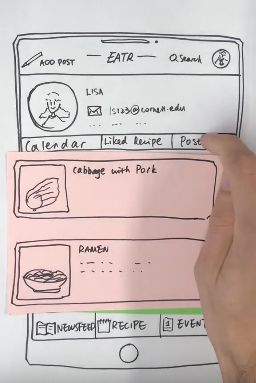 ADD POST — EATR — Search
LISA
ls123@cornell.edu
Calendar Liked Recipe Post
cabbage with Pork
RAMEN
NEWSFEED RECIPE EVENT